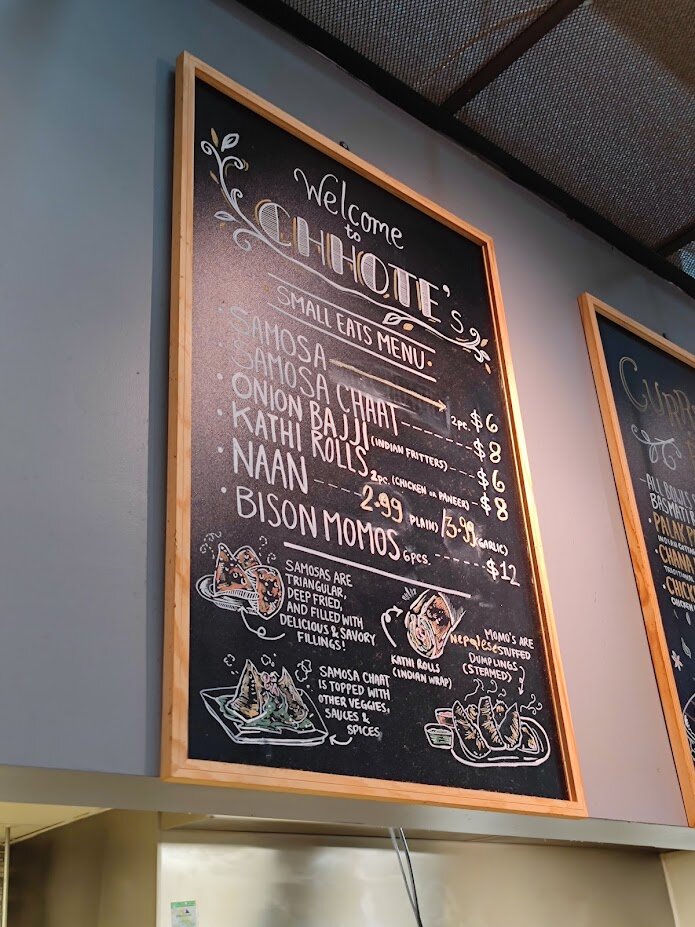 Welcome
to
CHHOTE's
SMALL EATS MENU
SAMOSA 2pc. $6
SAMOSA CHAAT $8
ONION BAJJI (INDIAN FRITTERS) $6
KATHI ROLLS 2pc. (CHICKEN OR PANEER) $8
NAAN 2.99 PLAIN) /3.99 (GARLIC)
BISON MOMOS 6pcs. $12
SAMOSAS ARE
TRIANGULAR,
DEEP FRIED,
AND FILLED WITH
DELICIOUS & SAVORY
FILLINGS!
KATHI ROLLS
(INDIAN WRAP)
MOMO'S ARE
NEPALESE STUFFED
DUMPLINGS
(STEAMED)
SAMOSA CHAAT
IS TOPPED WITH
OTHER VEGGIES,
SAUCES &
SPICES
BASMATI
PALAK
CHANA